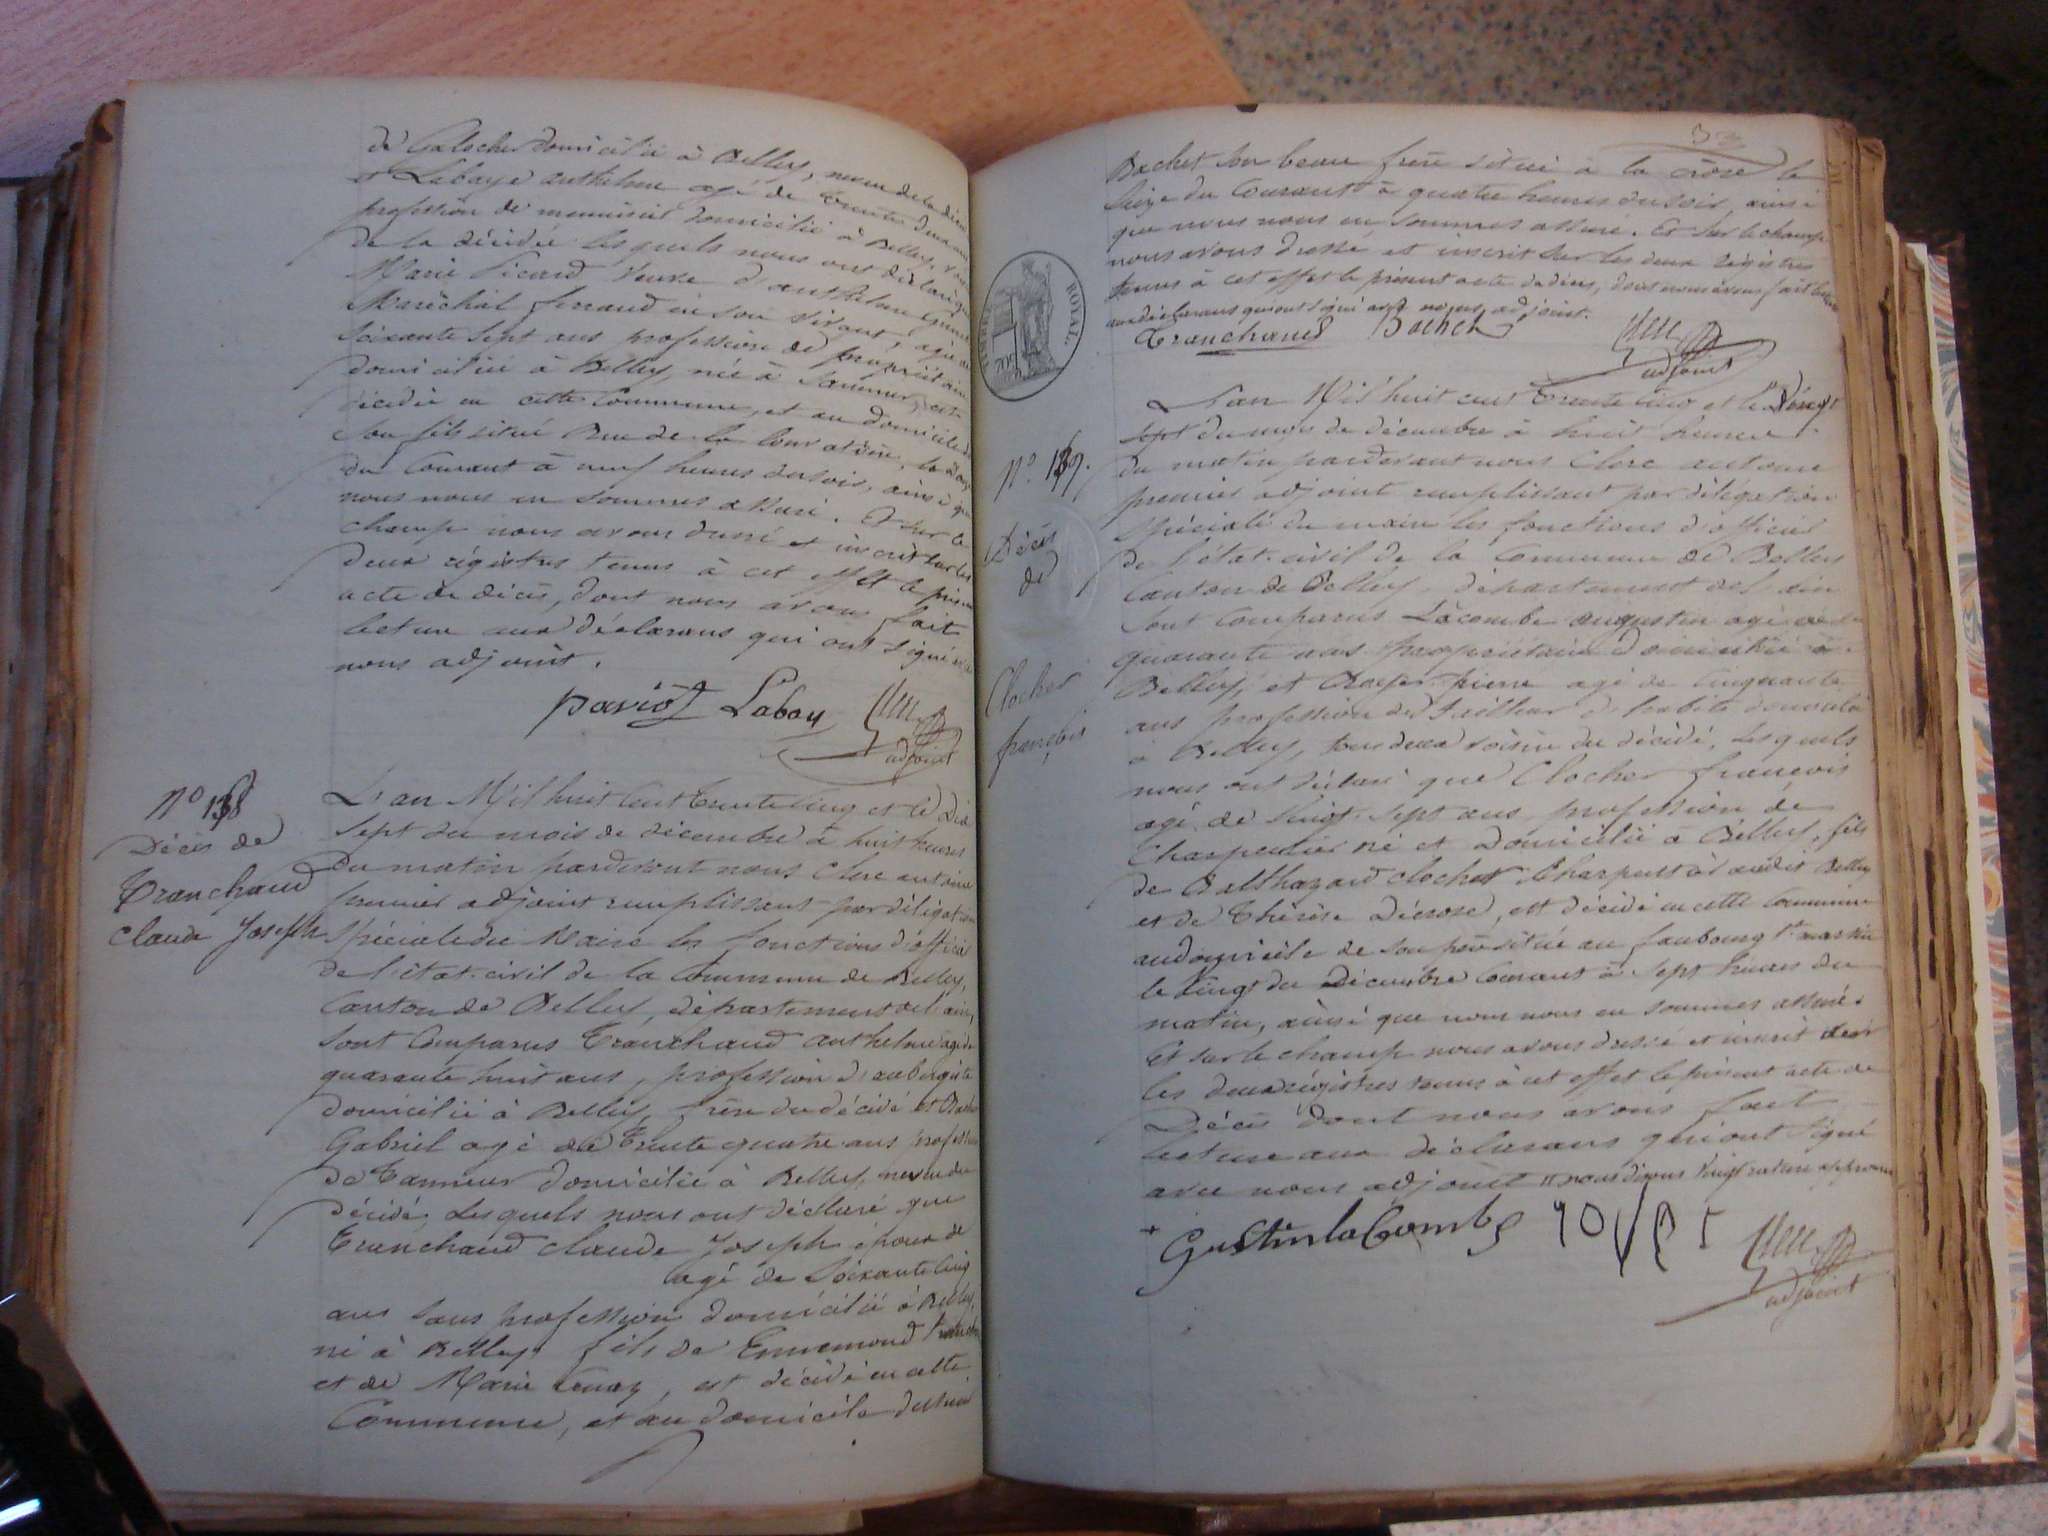 de Galocher domicilié à Belley, neveu de la
et Labaye anthelme agé de trente deux ans
profession de menuisier domicilié à Belley,
de la décédée lesquels nous ont déclaré que
Marie Picard veuve d'anthelme
Maréchal ferrand en son vivant, agée de
soixante sept ans profession de propriétaire
domiciliée à Belley, née à
décédée en cette Commune, et au domicile de
son fils situé Rue de la
du Courant à neuf heures du soir, ainsi que
nous nous en sommes assuré. Et sur le
champ nous avons dressé et inscrit sur les
deux régistres tenus à cet effet le présent
acte de décès, dont nous avons fait
lecture aux déclarans qui ont signé avec
nous adjoint.
pariot Labay
adjoint
N° 138
Décès de
Tranchand
claude Joseph
L'an Mil huit cent trente cinq et le Dix
sept du mois de décembre à huit heures
du matin pardevant nous Clerc antoine
premier adjoint remplissant par délégation
Spéciale du Maire les fonctions d'officier
de l'état-civil de la Commune de Belley,
Canton de Belley, département de l'ain,
sont Comparus Tranchand anthelme agé de
quarante huit ans, profession d'aubergiste
domicilié à Belley, frère du décédé et Bachet
Gabriel agé de trente quatre ans profession
de Tanneur domicilié à Belley, neveu du
décédé, Lesquels nous ont déclaré que
Tranchand claude Joseph époux de
agé de soixante cinq
ans sans profession domicilié à Belley,
né à Belley fils de Ennemond Tranchand
et de Marie, est décédé en cette
Commune, et au domicile du
Bachet son beau frère situé à la le
seize du Courant à quatre heures du soir, ainsi
que nous nous en sommes assuré. Et sur le champ
nous avons dressé et inscrit sur les deux régistres
tenus à cet effet le présent acte de décès, dont nous avons fait lecture
aux déclarans qui ont signé avec nous adjoint.
Tranchand Bachet
adjoint
TIMBRE ROYAL
N° 139.
Décès
de
Clochet
françois
L'an Mil huit cent trente cinq et le vingt
sept du mois de décembre à huit heures
du matin pardevant nous Clerc antoine
premier adjoint remplissant par délégation
spéciale du maire les fonctions d'officier
de l'état-civil de la Commune de Belley
Canton de Belley, département de l'ain
sont Comparus Lacombe augustin agé de
quarante ans propriétaire domicilié à
Belley, et pierre agé de cinquante
ans profession de Tailleur d'habits domicilié
à Belley, tous deux voisins du décédé, Lesquels
nous ont déclaré que Clochet françois
agé de vingt-sept ans profession de
Charpentier né et domicilié à Belley, fils
de Balthazard clochet Charpentier audit Belley
et de Thérèse, est décédé en cette Commune
au domicile de son père situé au faubourg St martin
le vingt du Décembre Courant à sept heures du
matin, ainsi que nous nous en sommes assuré.
Et sur le champ nous avons dressé et inscrit sur
les deux régistres tenus à cet effet le présent acte de
Décès dont nous avons fait
lecture aux déclarans qui ont signé
avec nous adjoint nous disons vingt rature approuvé
Gustin la Combe
adjoint